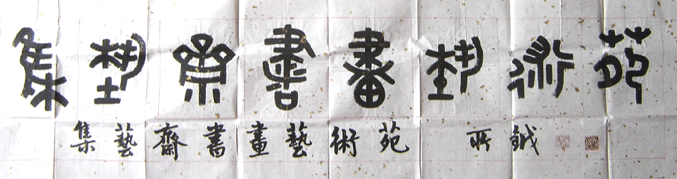 集藝齋書畫藝術苑
集藝齋書畫藝術苑